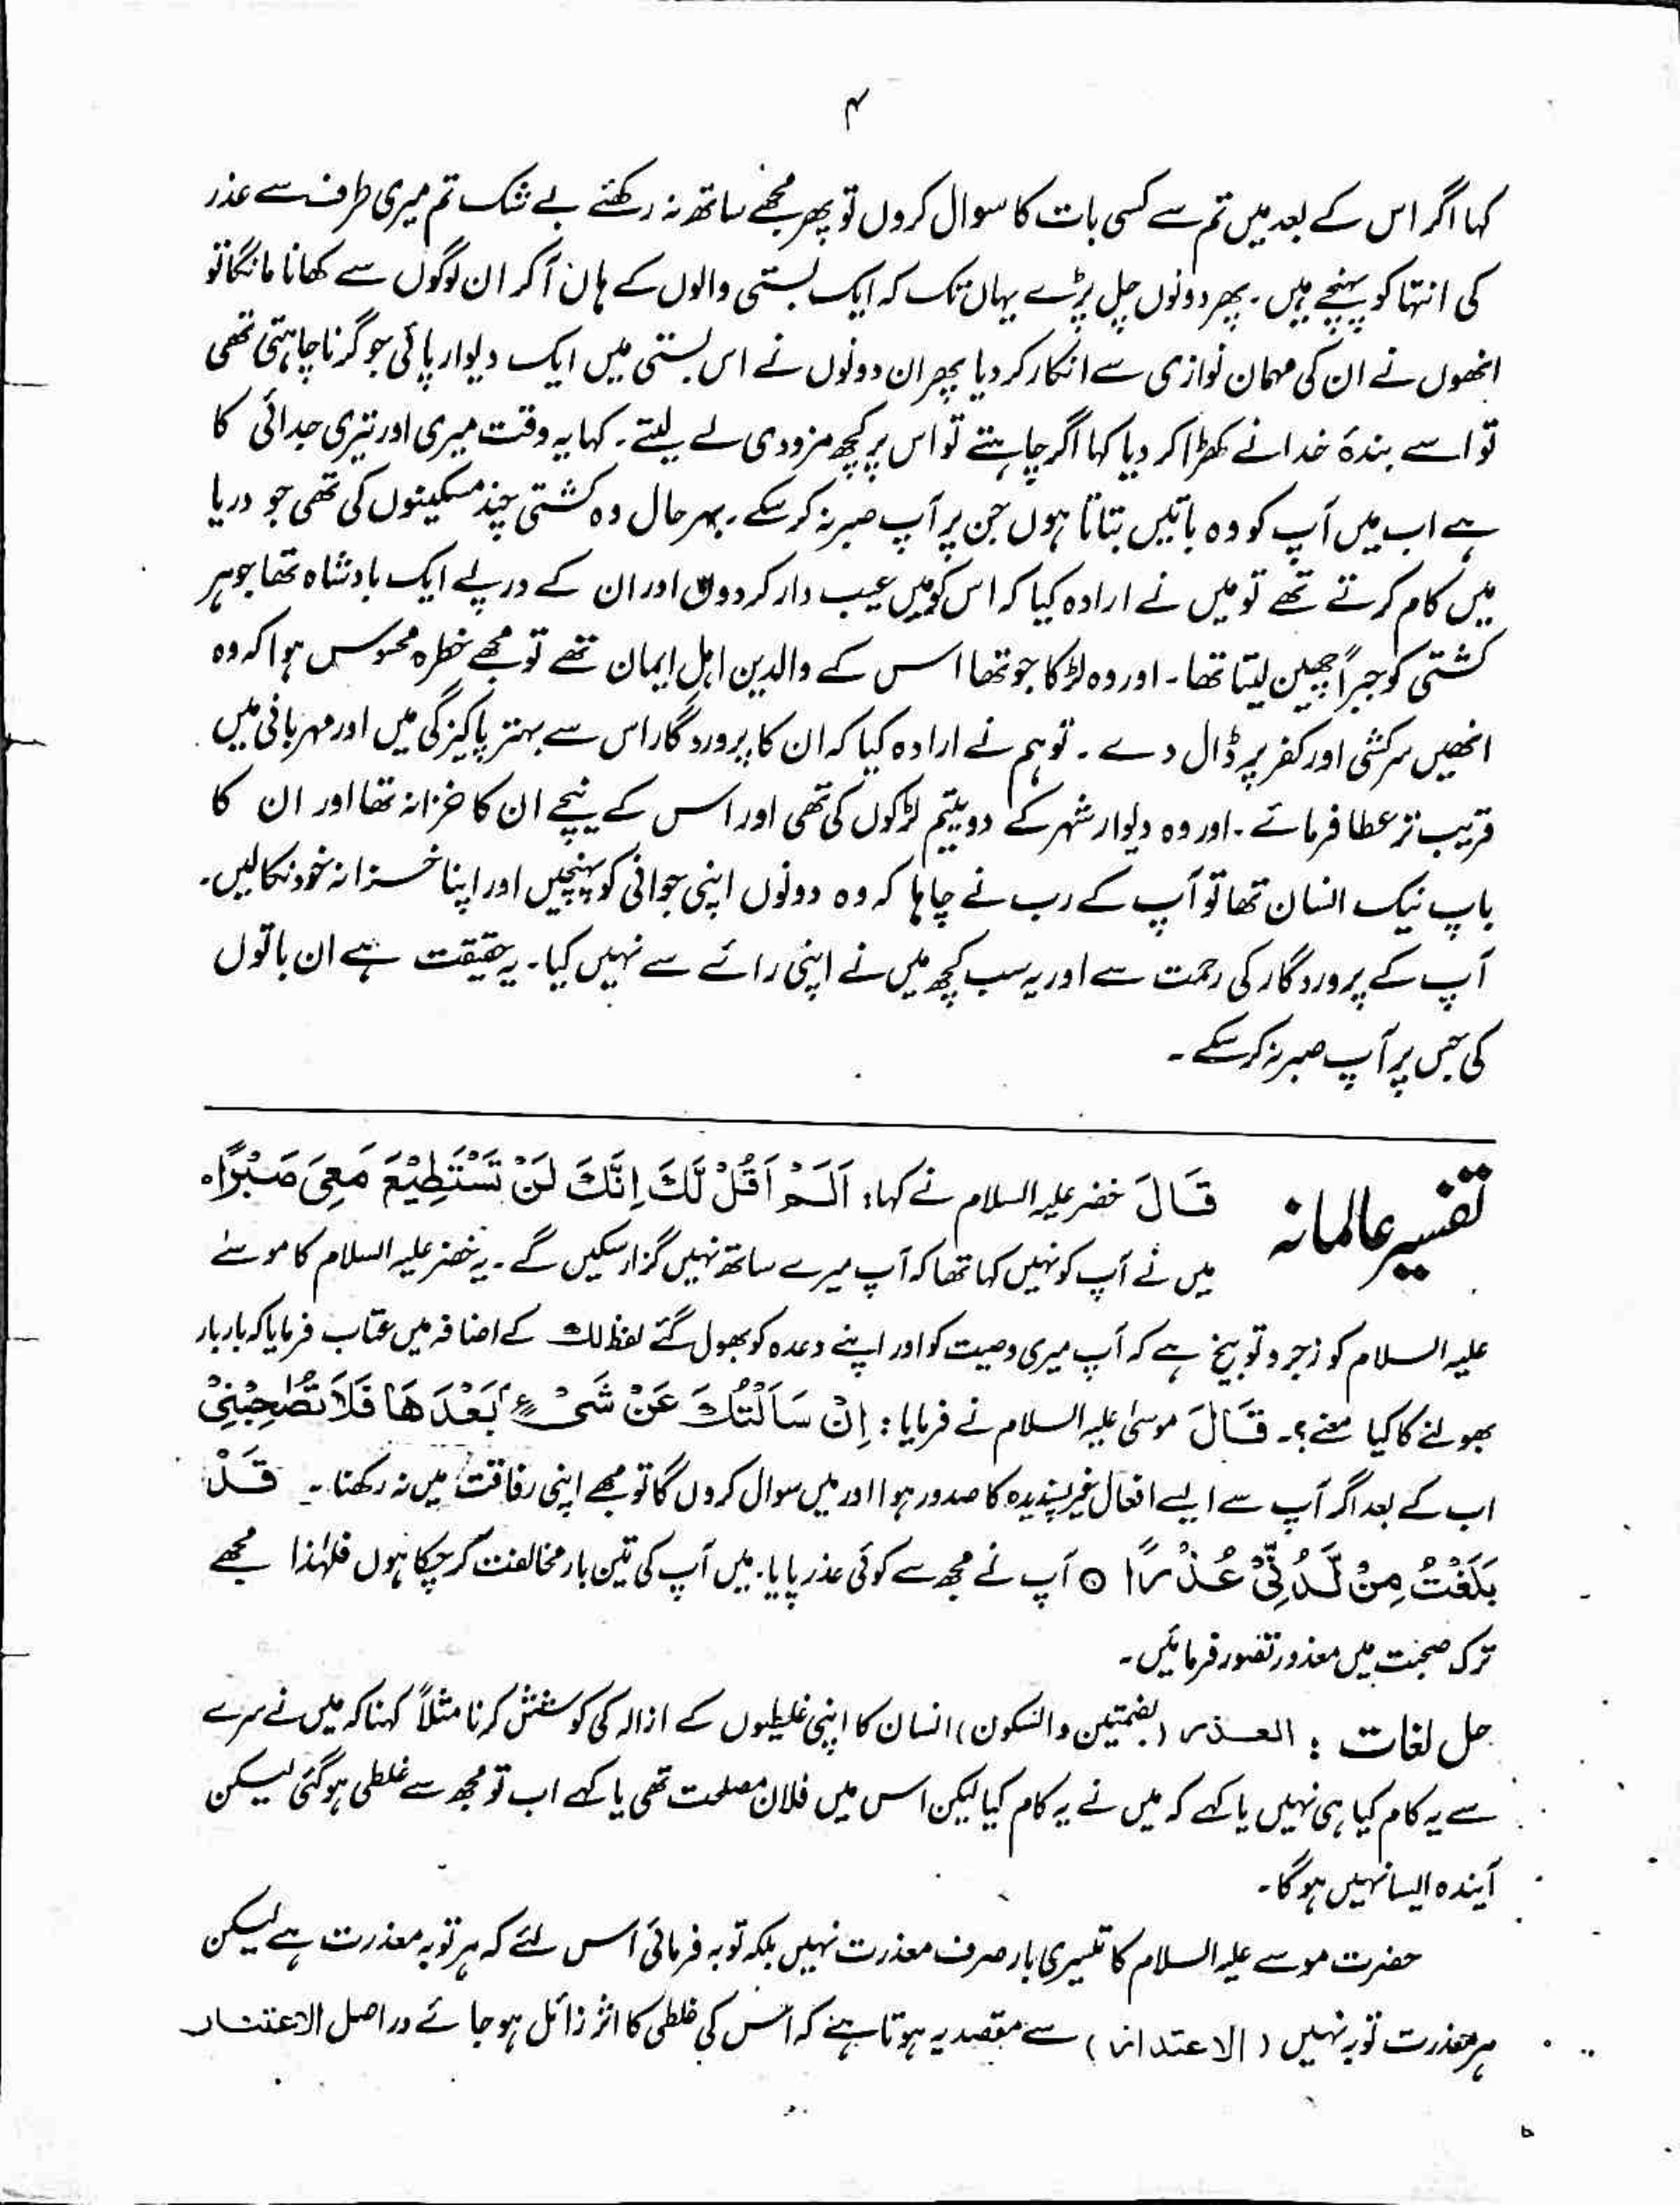 ۴
کہا اگر اس کے بعد میں تم سے کسی بات کا سوال کروں تو پھر مجھے ساتھ نہ رکھئے بے شک تم میری طرف سے عذر
کی انتہا کو پہنچے ہیں۔ پھر دونوں چل پڑے یہاں تک کہ ایک بستی والوں کے ہاں آکر ان لوگوں سے کھانا مانگا تو
انھوں نے ان کی مہمان نوازی سے انکار کر دیا پھر ان دونوں نے اس بستی میں ایک دیوار پائی جو گرنا چاہتی تھی
تو اسے بندۂ خدا نے کھڑا کر دیا کہا اگر چاہتے تو اس پر کچھ مزودی لے لیتے۔ کہا یہ وقت میری اور تیری جدائی کا
ہے اب میں آپ کو وہ باتیں بتاتا ہوں جن پر آپ صبر نہ کر سکے۔ بہر حال وہ کشتی چند مسکینوں کی تھی جو دریا
میں کام کرتے تھے تو میں نے ارادہ کیا کہ اس کو میں عیب دار کر دوں اور ان کے درپے ایک بادشاہ تھا جو ہر
کشتی کو جبراً چھین لیتا تھا۔ اور وہ لڑکا جو تھا اس کے والدین اہل ایمان تھے تو مجھے خطرہ محسوس ہوا کہ وہ
انھیں سرکشی اور کفر پر ڈال دے۔ تو ہم نے ارادہ کیا کہ ان کا پروردگار اس سے بہتر پاکیزگی میں اور مہربانی میں
قریب تر عطا فرمائے۔ اور وہ دیوار شہر کے دو یتیم لڑکوں کی تھی اور اس کے نیچے ان کا خزانہ تھا اور ان کا
باپ نیک انسان تھا تو آپ کے رب نے چاہا کہ وہ دونوں اپنی جوانی کو پہنچیں اور اپنا خزانہ خود نکالیں۔
آپ کے پروردگار کی رحمت سے اور یہ سب کچھ میں نے اپنی رائے سے نہیں کیا۔ یہ حقیقت ہے ان باتوں
کی جس پر آپ صبر نہ کر سکے۔
تفسیر عالمانہ قَالَ خضر علیہ السلام نے کہا: اَلَمْ اَقُلْ لَّكَ اِنَّكَ لَنْ تَسْتَطِيْعَ مَعِيَ صَبْرًا۔
میں نے آپ کو نہیں کہا تھا کہ آپ میرے ساتھ نہیں گزار سکیں گے۔ یہ خضر علیہ السلام کا موسےٰ
علیہ السلام کو زجر و توبیخ ہے کہ آپ میری وصیت کو اور اپنے وعدہ کو بھول گئے لفظ لك کے اضافہ میں عتاب فرمایا کہ بار بار
بھولنے کا کیا معنے؟۔ قَالَ موسیٰ علیہ السلام نے فرمایا: اِنْ سَاَلْتُكَ عَنْ شَیْءٍ بَعْدَهَا فَلَا تُصٰحِبْنِيْ
اب کے بعد اگر آپ سے ایسے افعال غیر پسندیدہ کا صدور ہوا اور میں سوال کروں گا تو مجھے اپنی رفاقت میں نہ رکھنا۔ قَدْ
بَلَغْتَ مِنْ لَّدُنِّیْ عُذْرًا ○ آپ نے مجھ سے کوئی عذر پایا۔ میں آپ کی تین بار مخالفت کر چکا ہوں فلہٰذا مجھے
ترک صحبت میں معذور تصور فرمائیں۔
حل لغات : العذر (بضمتین والسکون) انسان کا اپنی غلیطوں کے ازالہ کی کوشش کرنا مثلاً کہنا کہ میں نے سرے
سے یہ کام کیا ہی نہیں یا کہے کہ میں نے یہ کام کیا لیکن اس میں فلان مصلحت تھی یا کہے اب تو مجھ سے غلطی ہوگئی لیکن
آیندہ ایسا نہیں ہوگا۔
حضرت موسے علیہ السلام کا تیسری بار صرف معذرت نہیں بلکہ توبہ فرمائی اس لئے کہ ہر توبہ معذرت ہے لیکن
ہر معذرت توبہ نہیں (الاعتذار) سے مقصد یہ ہوتا ہے کہ اس کی غلطی کا اثر زائل ہو جائے دراصل الاعتذار